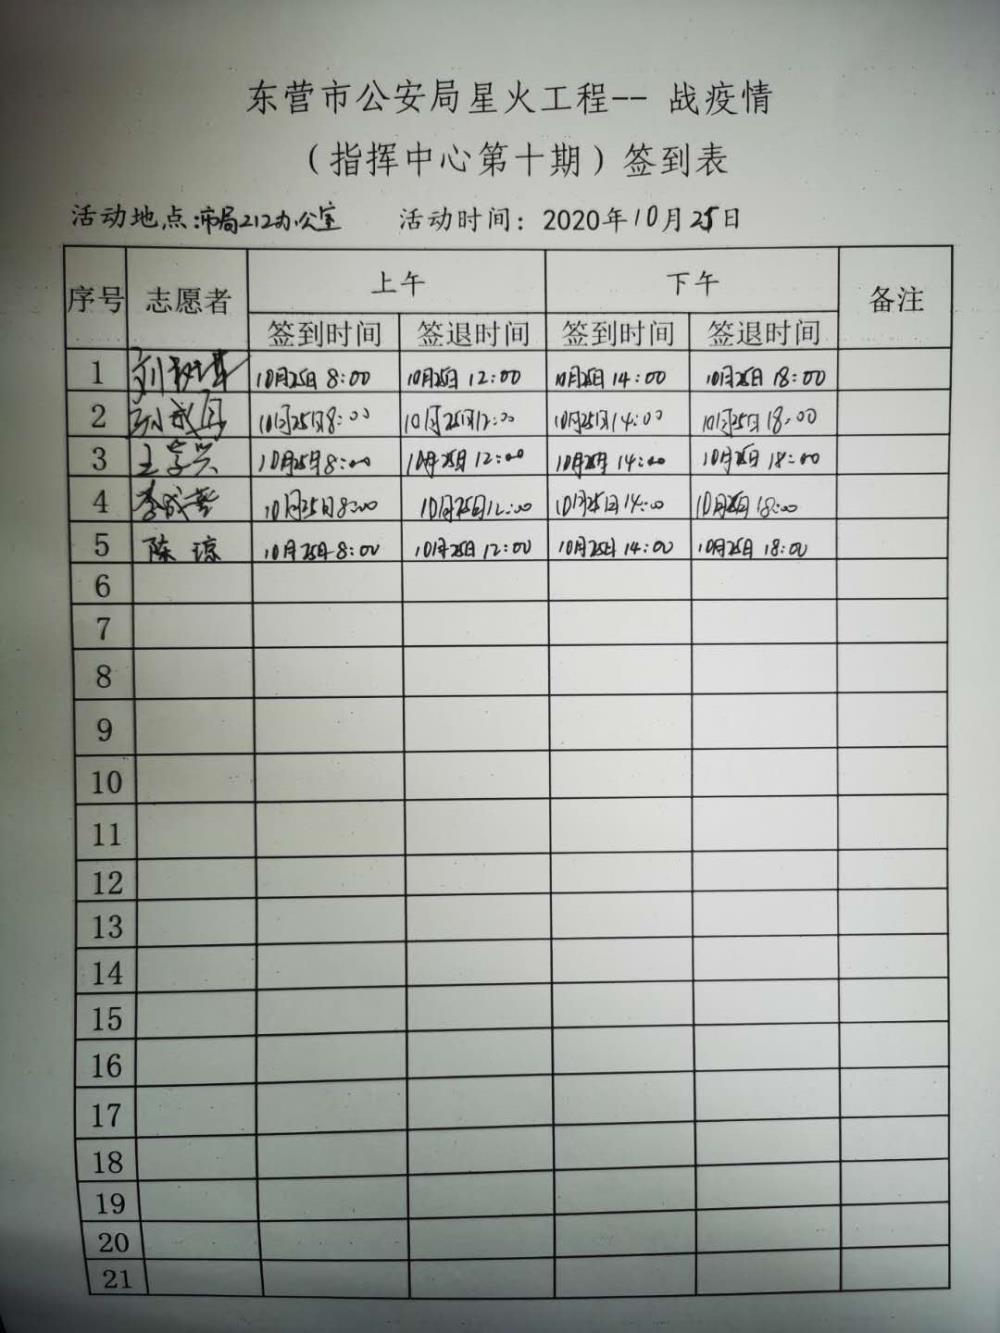 东营市公安局星火工程-- 战疫情
（指挥中心第十期）签到表
活动地点:市局212办公室 活动时间：2020年10月25日
序号 志愿者 上午 下午 备注
签到时间 签退时间 签到时间 签退时间
1 刘 10月25日 8:00 10月25日 12:00 10月25日 14:00 10月25日 18:00
2 10月25日8:00 10月25日12:00 10月25日14:00 10月25日18:00
3 王 10月25日8:00 10月25日 12:00 10月25日 14:00 10月25日 18:00
4 李 10月25日8:00 10月25日12:00 10月25日14:00 10月25日 18:00
5 陈琼 10月25日 8:00 10月25日 12:00 10月25日 14:00 10月25日 18:00
6
7
8
9
10
11
12
13
14
15
16
17
18
19
20
21